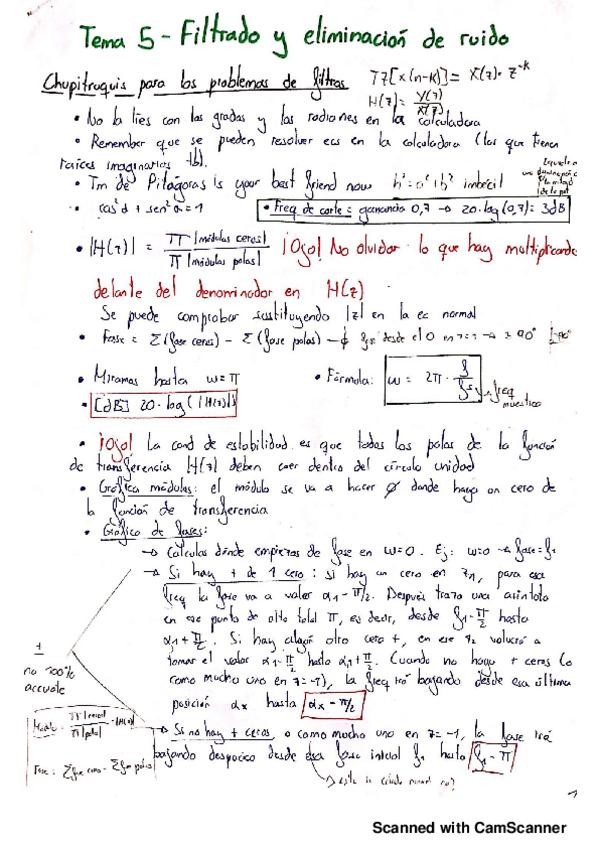 Tema 5 - Filtrado y eliminación de ruido
Chupitruquis para los problemas de filtros
TZ[x(n-k)] = X(z) · z^-k
H(z) = Y(z)/X(z)
• No la líes con los grados y los radianes en la calculadora
• Remember que se pueden resolver ecs en la calculadora (las que tienen
raíces imaginarias tb).
• Tm de Pitágoras is your best friend now h² = a² + b² imbécil
• cos²α + sen²α = 1
• Freq de corte = ganancia 0,7 → 20·log(0,7) = 3dB
• |H(z)| = π |módulos ceros| / π |módulos polos| ¡Ojo! No olvidar lo que hay multiplicando
delante del denominador en H(z)
Se puede comprobar sustituyendo |z| en la ec normal
• Fase = Σ(fase ceros) - Σ(fase polos) → desde el 0
• Miramos hasta ω = π
• Fórmula: ω = 2π · f/fs → freq muestreo
• [dB] 20·log(|H(z)|)
• ¡Ojo! La cond de estabilidad es que todos los polos de la función
de transferencia H(z) deben caer dentro del círculo unidad
• Gráfica módulos: el módulo se va a hacer 0 donde haya un cero de
la función de transferencia
• Gráfico de fases:
→ Calculas dónde empiezas de fase en ω=0. Ej: ω=0 → fase = f1
→ Si hay + de 1 cero: si hay un cero en z1, para esa
freq la fase va a valer α1 - π/2. Después trazo una asíntota
en ese punto de alto total π, es decir, desde α1 - π/2 hasta
α1 + π/2. Si hay algún otro cero +, en ese z2 volverá a
tomar el valor α1 - π/2 hasta α1 + π/2. Cuando no haya + ceros (o
como mucho uno en z=-1), la freq irá bajando desde esa última
posición αx hasta αx - π/2
→ Si no hay + ceros, o como mucho uno en z=-1, la fase irá
bajando despacico desde esa fase inicial f1 hasta f1 - π
1
no 100%
accurate
Módulo = π|ceros| / π|polos| = |H(z)|
Fase = Σ fase ceros - Σ fase polos
Scanned with CamScanner